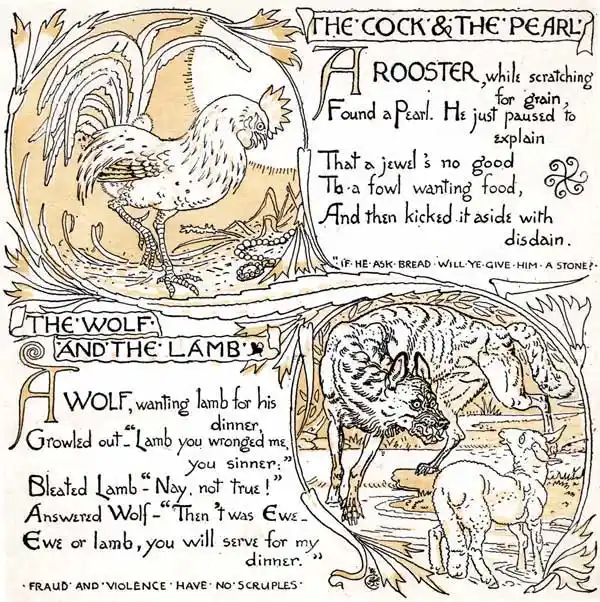 THE·COCK·&·THE·PEARL·
A ROOSTER, while scratching
for grain,
Found a Pearl. He just paused to
explain
That a jewel's no good
To·a fowl wanting food,
And then kicked it aside with
disdain.
"IF·HE·ASK·BREAD·WILL·YE·GIVE·HIM·A·STONE?·
THE·WOLF·
·AND·THE·LAMB·
A WOLF, wanting lamb for his
dinner,
Growled out–"Lamb you wronged me,
you sinner:"
Bleated Lamb–"Nay, not true!"
Answered Wolf–"Then 't was Ewe–
Ewe or lamb, you will serve for my
dinner."
·FRAUD·AND·VIOLENCE·HAVE·NO·SCRUPLES·